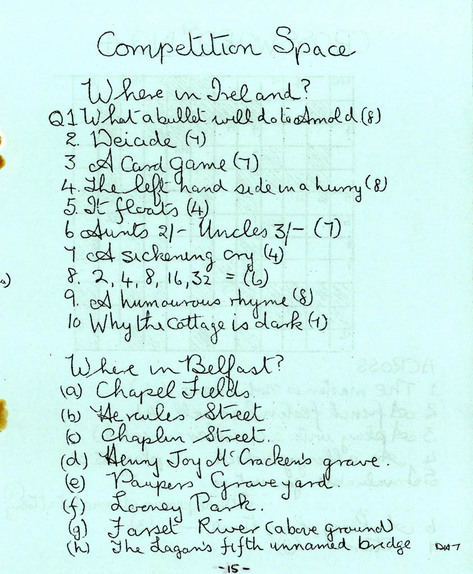 Competition Space
Where in Ireland?
Q1 What a bullet will do to Arnold (8)
2. Deicide (7)
3 A Card game (7)
4. The left hand side in a hurry (8)
5. It floats (4)
6 Aunts 2/- Uncles 3/- (7)
7 A sickening cry (4)
8. 2, 4, 8, 16, 32 = (6)
9. A humourous rhyme (8)
10 Why the Cottage is dark (7)
Where in Belfast?
(a) Chapel Fields.
(b) Hercules Street
(c) Chaplin Street.
(d) Henny Joy McCracken's grave.
(e) Paupers Graveyard.
(f) Looney Park.
(g) Farset River (above ground)
(h) The Lagan's fifth unnamed bridge
-15-